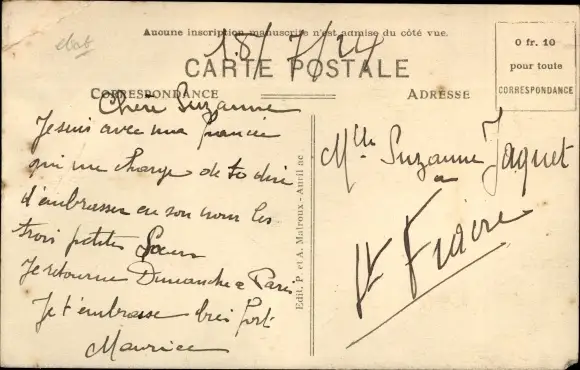 ebab
Aucune inscription manuscrite n'est admise du côté vue.
18/7/24
CARTE POSTALE
CORRESPONDANCE
ADRESSE
0 fr. 10
pour toute
CORRESPONDANCE
Chère Suzanne
Je suis avec ma fiancée
qui me charge de te dire
d'embrasser en son nom les
trois petites Soeurs
Je retourne Dimanche a Paris
Je t'embrasse bien fort
Maurice
Edit. P. et A. Matroux - Anvil ac
Mlle Suzanne Jaquet
a
St